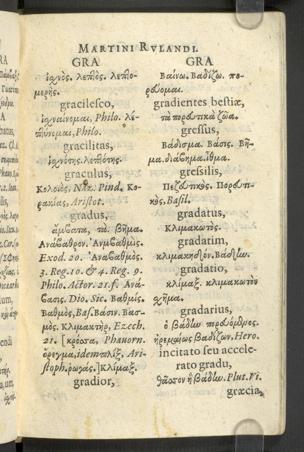 MARTINI RVLANDI.
GRA
ἰσχνὸς. λεπτὸς. λεπτο-
μερής.
gracilesco,
ἰσχναίνομαι, Philo. λε-
πτύνομαι, Philo.
gracilitas,
ἰσχνότης. λεπτότης.
graculus,
Κολοιὸς, Pind. Κο-
ρακίας, Aristot.
gradus,
τὸ. βῆμα.
Ἀνάβαθρον. Ἀναβαθμὸς.
Exod. 20.
3. Reg. 10. & 4. Reg. 9.
Philo. Actor. 21. f. Ἀνά-
βασις. Dio. Sic. Βαθμὶς.
Βαθμὸς, Bas. Βάσιν. Βασ-
μὸς. Κλιμακτὴρ, Ezech.
21. [κρόσσα, Phauorn.
ὄρεγμα, idem. πλὶξ, Ari-
stoph. ] Κλίμαξ.
gradior,
GRA
Βαίνω. Βαδίζω. πο-
ρεύομαι.
gradientes bestiæ,
τὰ πορευτικὰ ζῶα.
gressus,
Βάδισμα. Βάσις. Βῆ-
μα. διάβημα. ἴθμα.
gressilis,
Πεζευτικὸς. Πορευτι-
κὸς, Basil.
gradatus,
Κλιμακωτὸς.
gradatim,
κλιμακηδὸν.
gradatio,
κλίμαξ. κλιμακωτὸν
σχῆμα.
gradarius,
ὁ βάδην
ἠρεμαίως βαδίζων. Hero.
incitato seu accele-
rato gradu,
θᾶττον ἢ βάδην. Plut. Vi.
græcia,